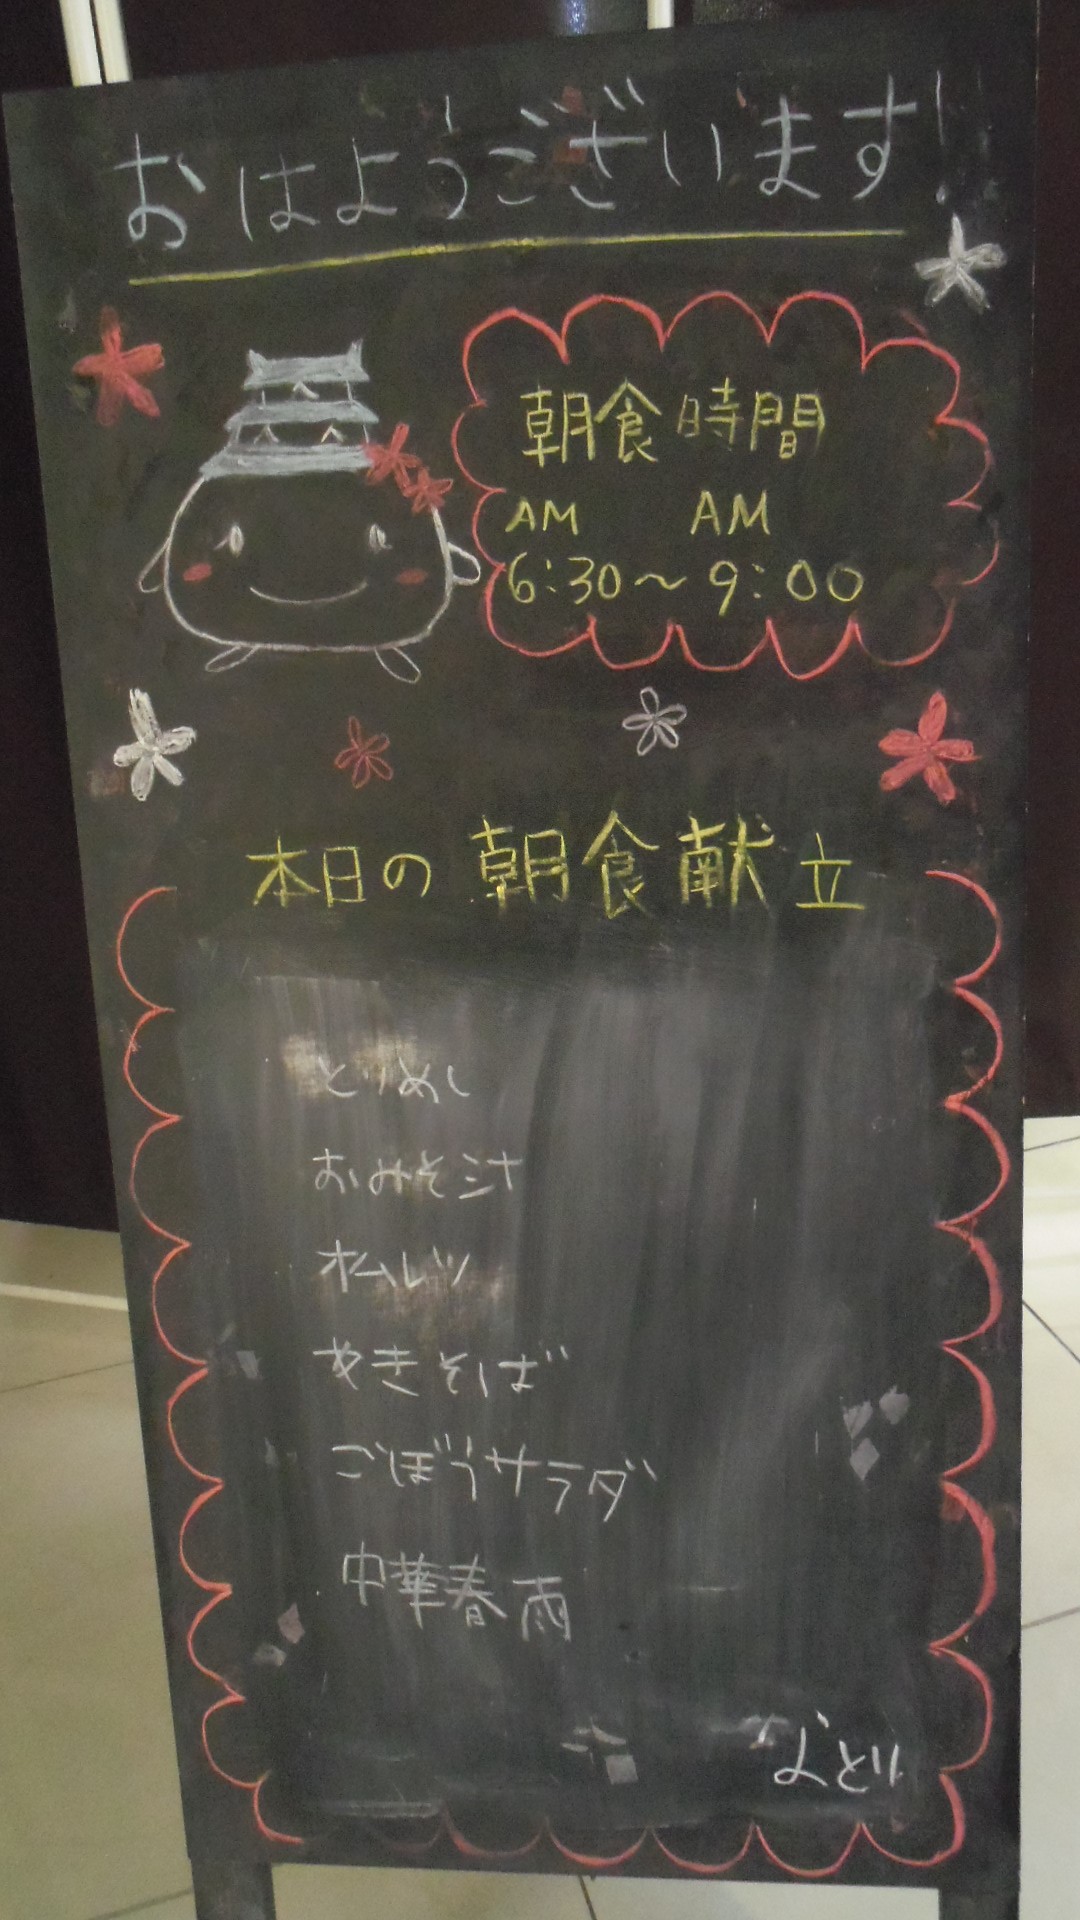 おはようございます!
朝食時間
AM AM
6:30～9:00
本日の朝食献立
とりめし
おみそ汁
オムレツ
やきそば
ごぼうサラダ
中華春雨